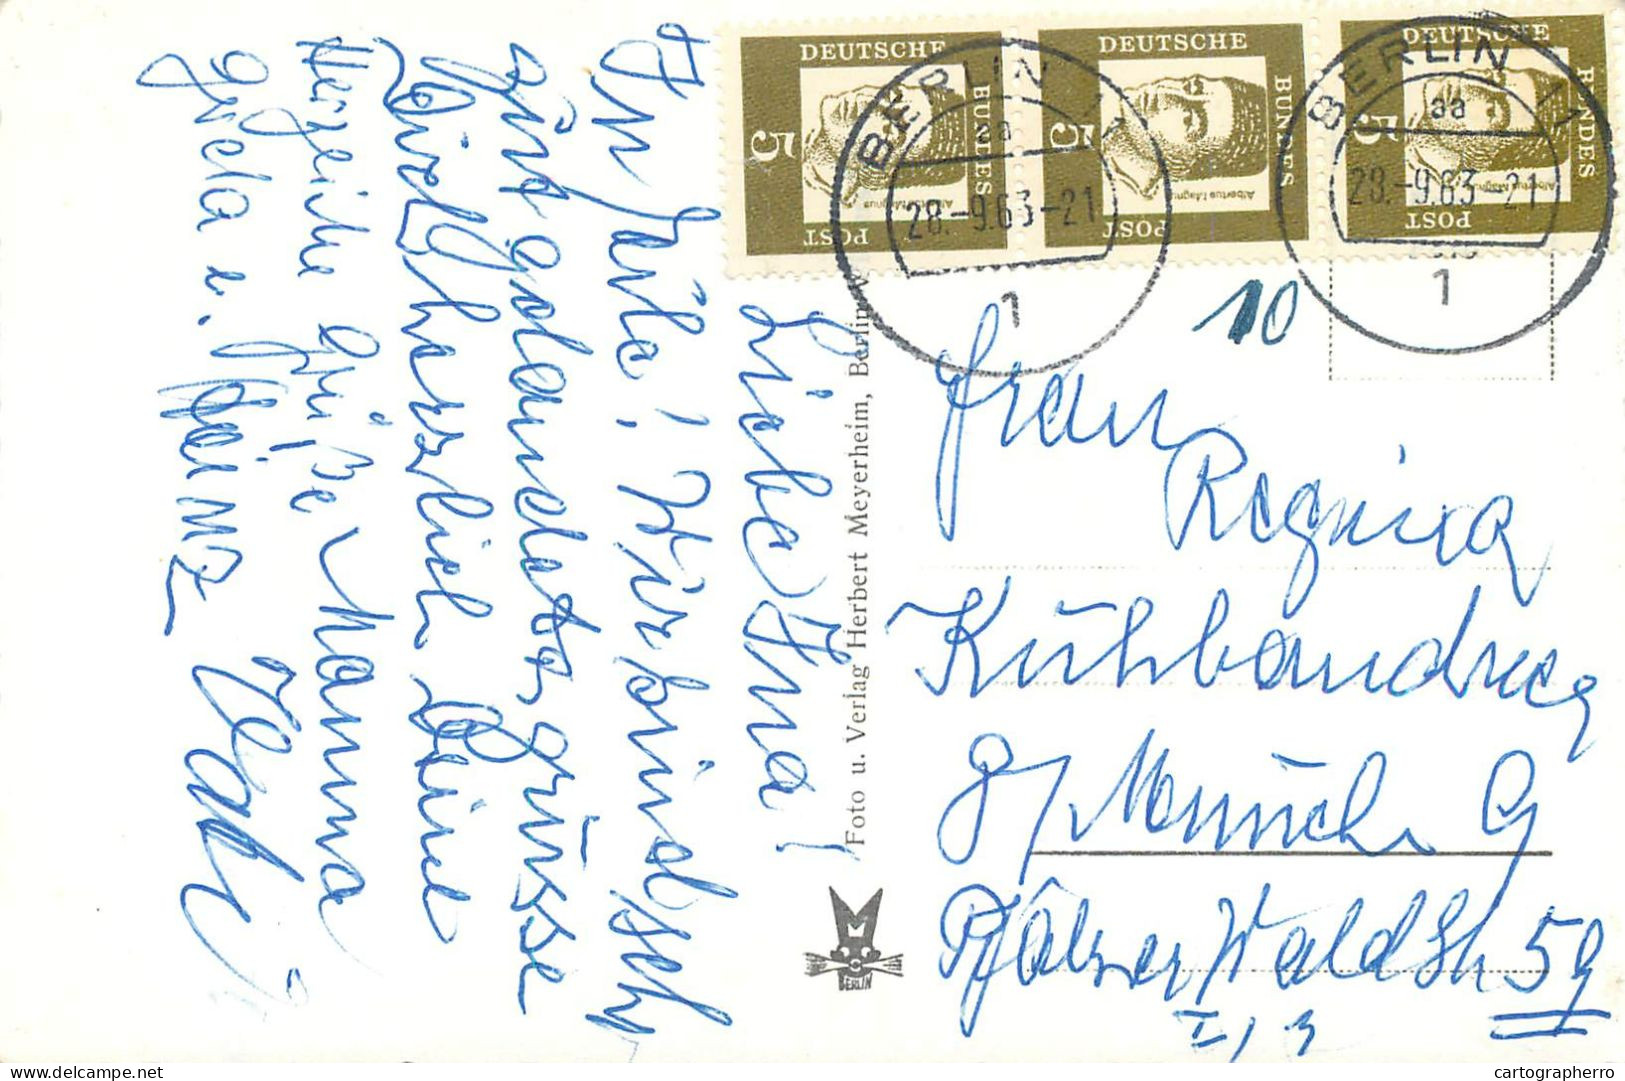 Liebe Ina!
In Eile! Wir sind sehr
gut gelandet, grüsse
Dich herzlich Deine
Herzliche Grüße Hanna
Gerda u. Heinz
DEUTSCHE
BUNDES
POST
5
Albertus Magnus
DEUTSCHE
BUNDES
POST
5
Albertus Magnus
DEUTSCHE
BUNDES
POST
5
Albertus Magnus
BERLIN 11
aa
28.-9.63-21
1
BERLIN 11
aa
28.-9.63-21
1
10
Foto u. Verlag Herbert Meyerheim, Berlin-W
M
BERLIN
Frau
Regina
8/ München 9
Pfälzer Waldstr 59
I/3
cartographerro